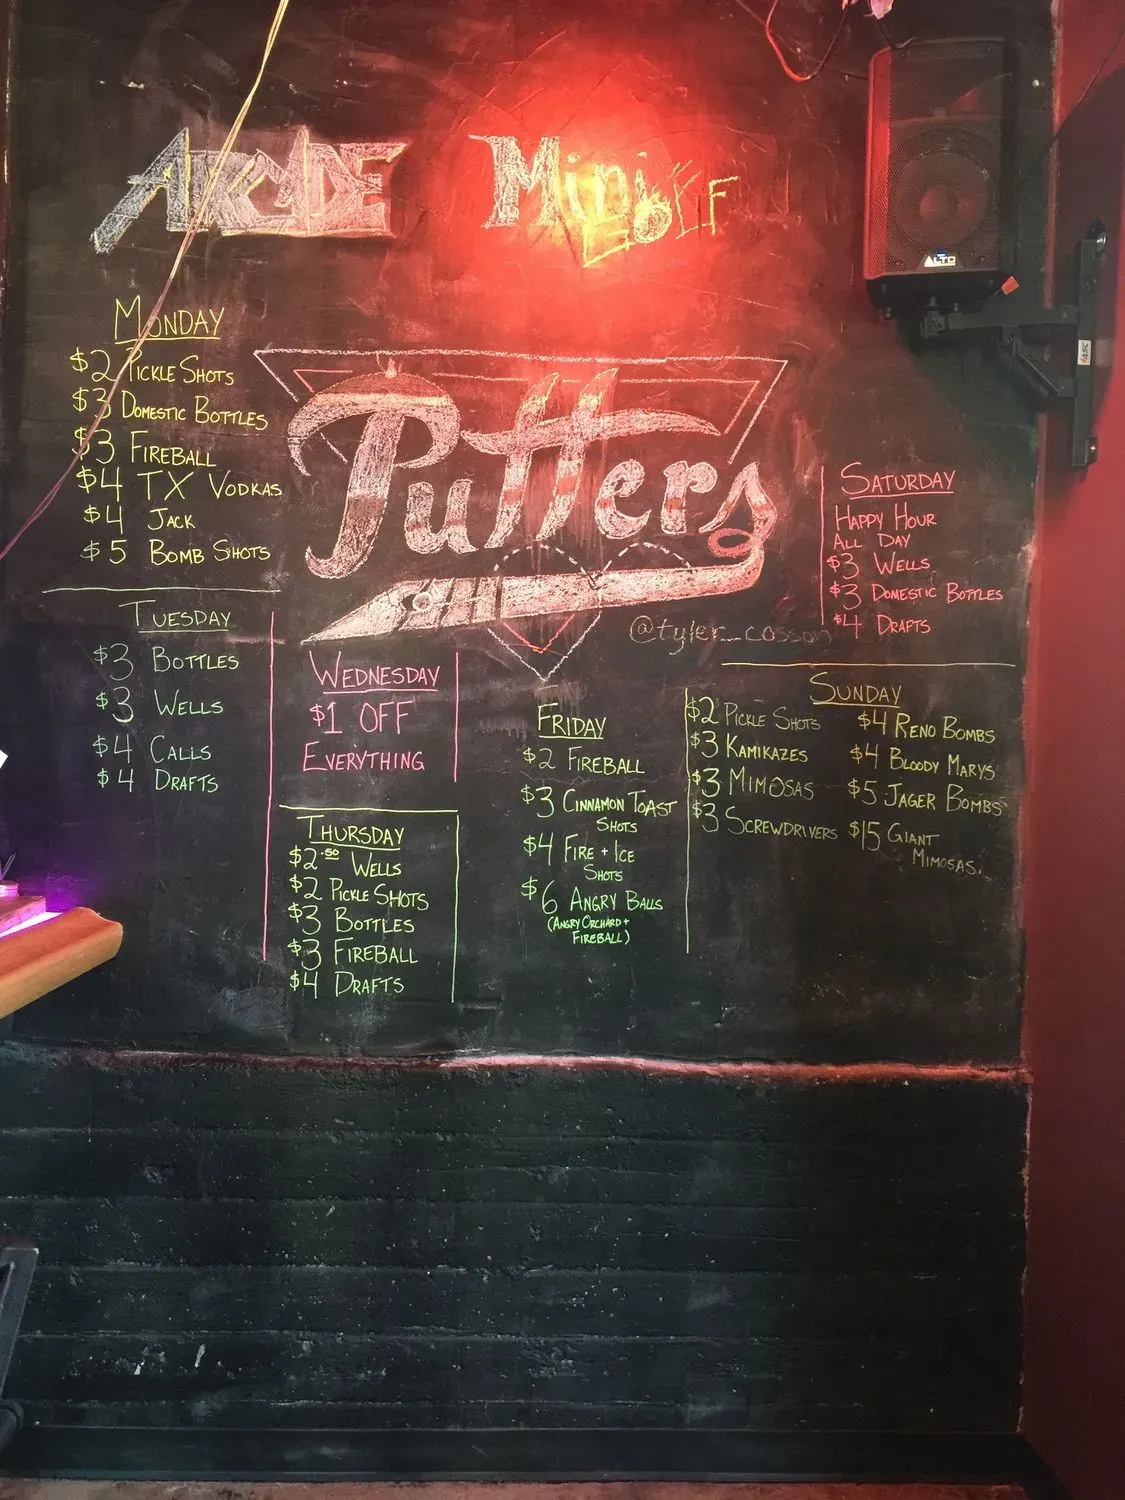 ARCADE Mini GOLF
ALTO
MONDAY
$2 PICKLE SHOTS
$3 DOMESTIC BOTTLES
$3 FIREBALL
$4 TX VODKAS
$4 JACK
$5 BOMB SHOTS
Putters
@tyler_cosson
SATURDAY
HAPPY HOUR
ALL DAY
$3 WELLS
$3 DOMESTIC BOTTLES
$4 DRAFTS
TUESDAY
$3 BOTTLES
$3 WELLS
$4 CALLS
$4 DRAFTS
WEDNESDAY
$1 OFF
EVERYTHING
THURSDAY
$2.50 WELLS
$2 PICKLE SHOTS
$3 BOTTLES
$3 FIREBALL
$4 DRAFTS
FRIDAY
$2 FIREBALL
$3 CINNAMON TOAST
SHOTS
$4 FIRE + ICE
SHOTS
$6 ANGRY BALLS
(ANGRY ORCHARD +
FIREBALL)
SUNDAY
$2 PICKLE SHOTS
$3 KAMIKAZES
$3 MIMOSAS
$3 SCREWDRIVERS
$4 RENO BOMBS
$4 BLOODY MARYS
$5 JAGER BOMBS
$15 GIANT
MIMOSAS